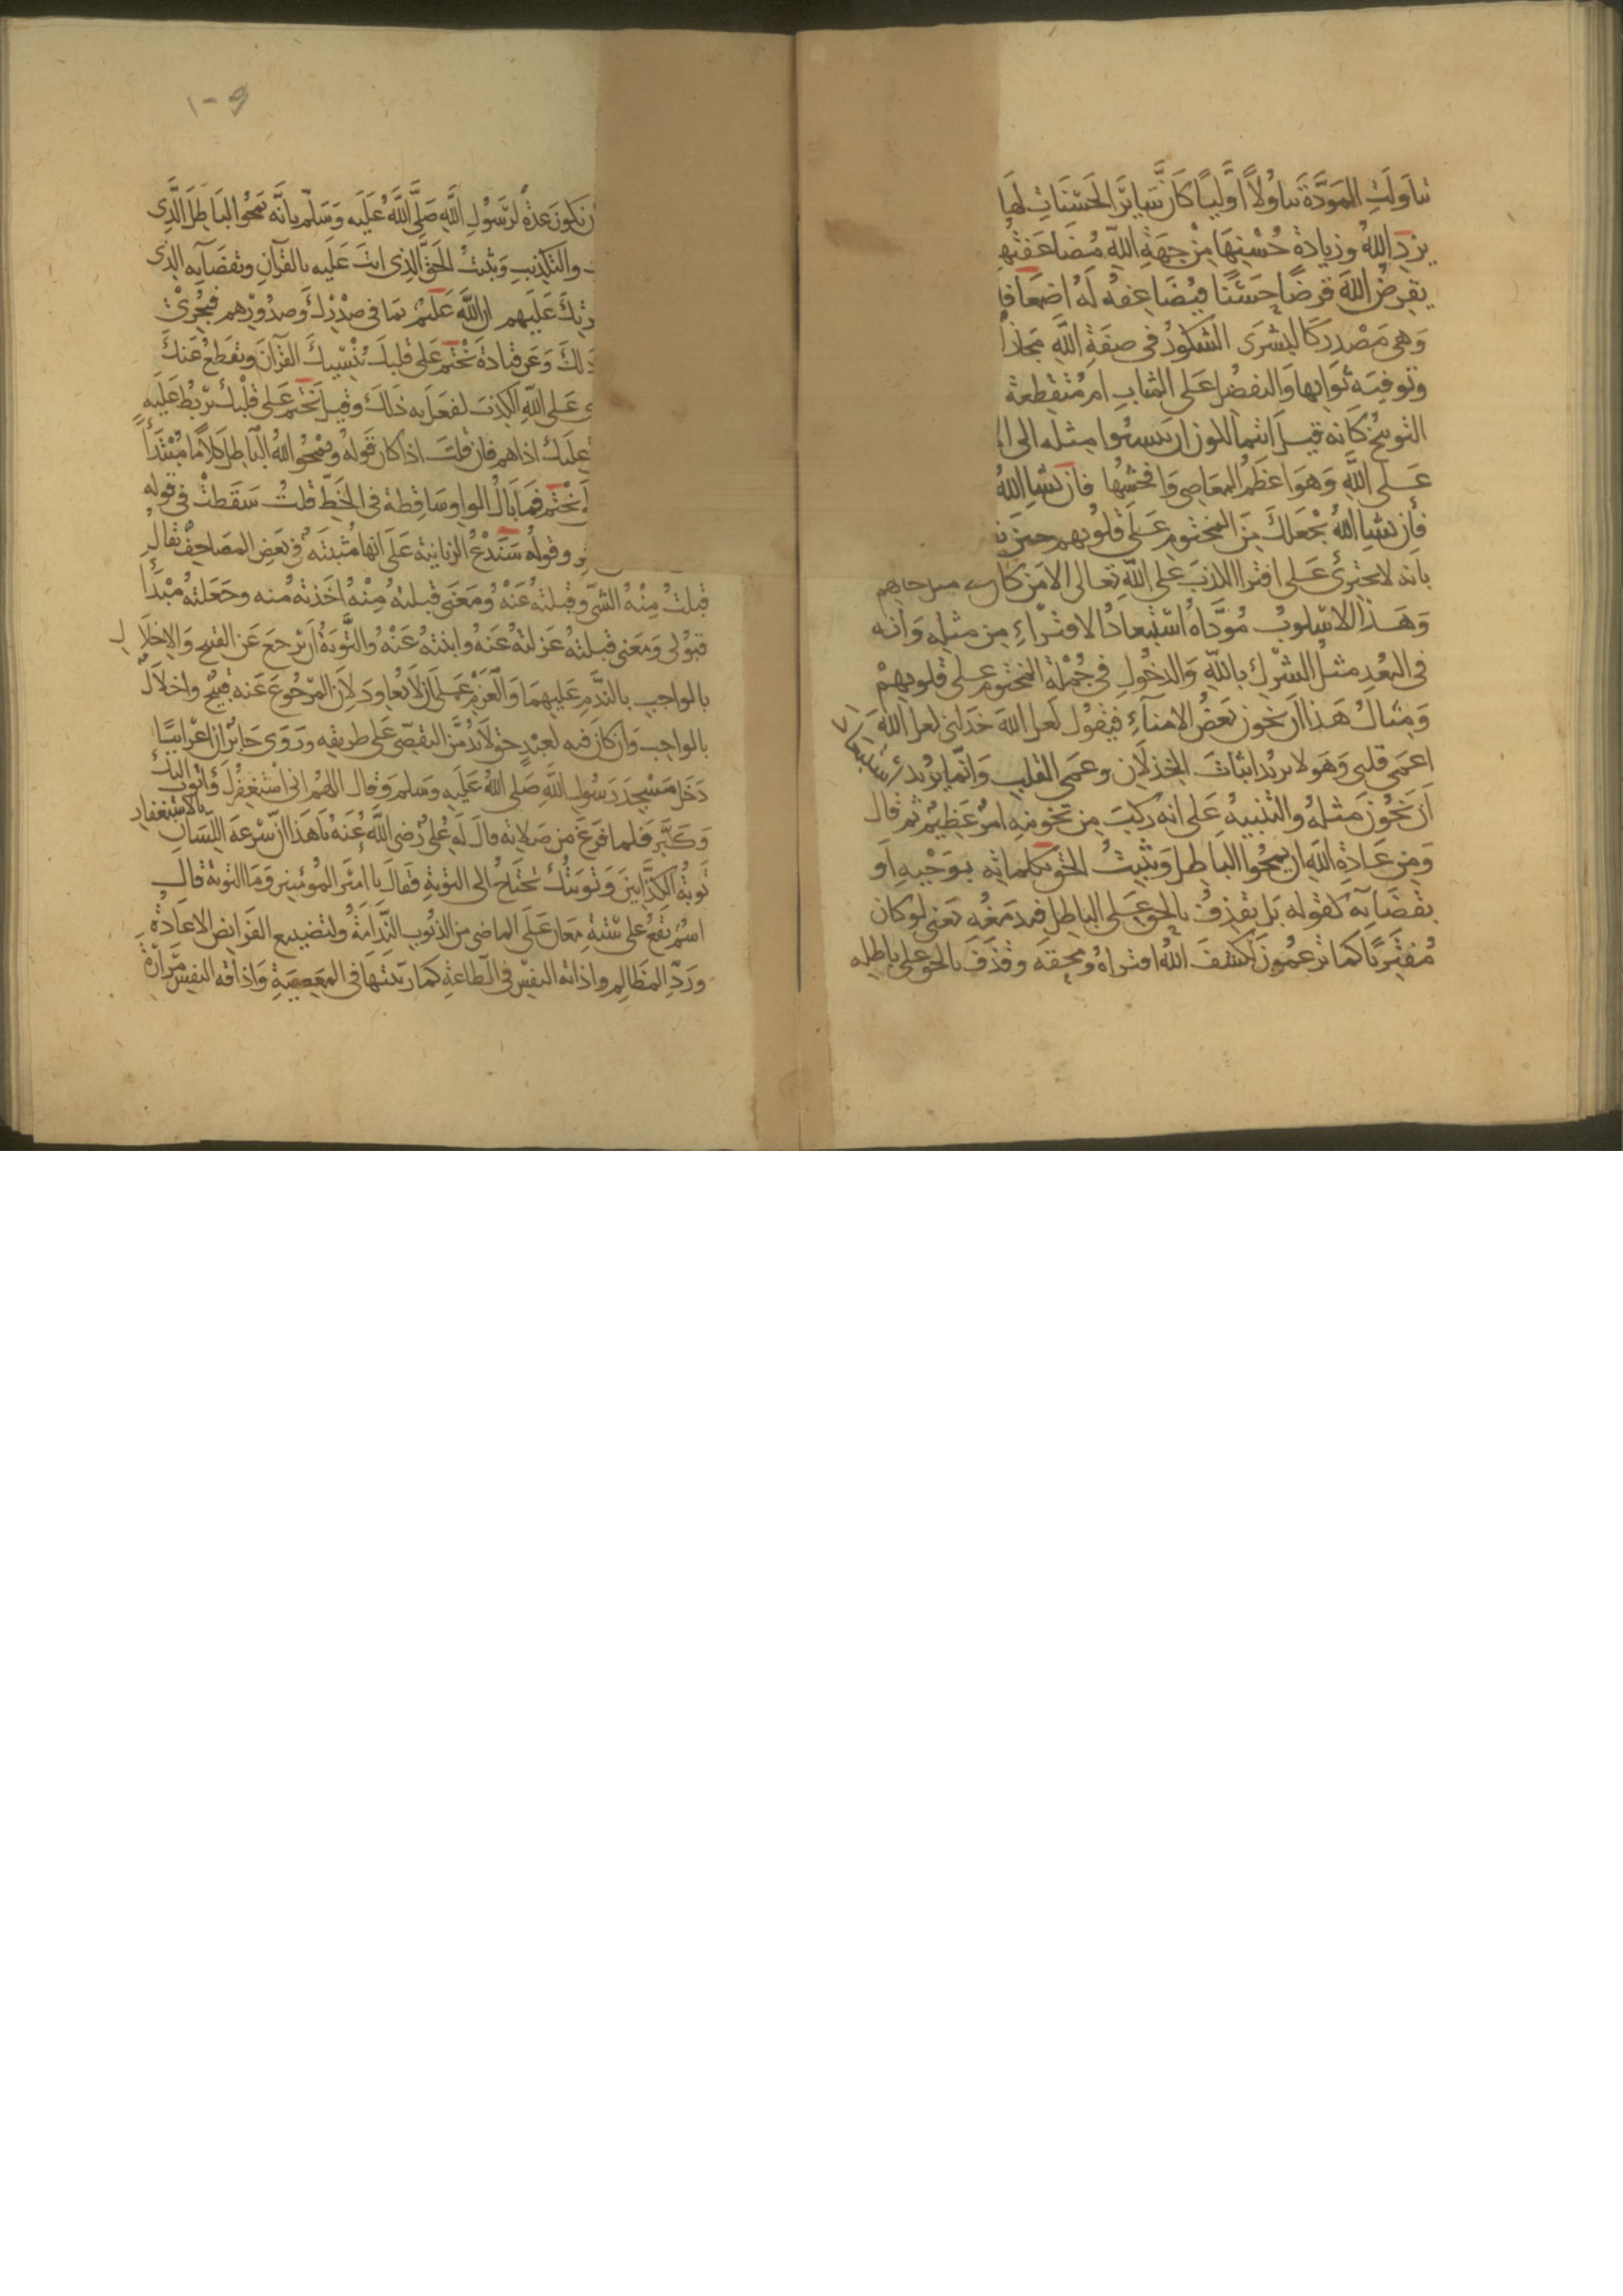 تناولت المودة تناولا اوليا كان سائر الحسنات لها
يزد الله وزيادة حسنها من جهة الله مضاعفتها
يقرض الله قرضا حسنا فيضاعفه له اضعافا
وهي مصدر كالبشرى الشكور في صفة الله مجاز
وتوفية ثوابها والتفضل على المثاب ام منقطعة
التوبيخ كانه قيل ايتمالكون ان ينسبوا مثله الى ا
على الله وهو اعظم المعاصي وافحشها فان يشا الله
فان يشا الله يجعلك من المختوم على قلوبهم حتى
بانه لا يجترئ على افترا الكذب على الله تعالى الا من كان في مثل حالهم
وهذا الاسلوب مؤداه استبعاد الافتراء من مثله وانه
في البعد مثل الشرك بالله والدخول في جملة المختوم على قلوبهم
ومثال هذا ان يخون بعض الامناء فيقول لعل الله خذلني لعل الله
اعمى قلبي وهو لا يريد اثبات الخذلان وعمى القلب وانما يريد استبعاد
ان يخون مثله والتنبيه على انه ركب من تخوينه امر عظيم ثم قال
ومن عادة الله ان يمحوا الباطل ويثبت الحق بكلماته بوحيه او
بقضائه كقوله بل نقذف بالحق على الباطل فيدمغه يعني لو كان
مفتريا كما تزعمون لكشف الله افتراه ومحقه وقذف بالحق على باطله
١٠٩
ن يكون عدة لرسول الله صلى الله عليه وسلم بانه يمحوا الباطل الذي
والتكذيب ويثبت الحق الذي انت عليه بالقرآن وبقضائه الذي
رتك عليهم ان الله عليم بما في صدرك وصدورهم فيجري
ذلك وعن قتادة يختم على قلبك ينسيك القرآن ويقطع عنك
ى على الله الكذب لفعل به ذلك وقيل يختم على قلبك يربط عليه
عليك اذاهم فان قلت اذا كان قوله ويمحوا الله الباطل كلاما مبتدأ
يختم فما بال الواو ساقطة في الخط قلت سقطت في قوله
وقوله سندع الزبانية على انها مثبتة في بعض المصاحف يقال
قبلت منه الشئ وقبلته عنه ومعنى قبلته منه اخذته منه وجعلته مبدأ
قبولي ومعنى قبلته عنه عزلته عنه وابنته عنه والتوبة ان يرجع عن القبيح والاخلال
بالواجب بالندم عليهما والعزم على ان لا يعاود لان المرجوع عنه قبيح واخلال
بالواجب وان كان فيه لعبد حق لا بد من التفصي على طريقه وروى جابر ان اعرابيا
دخل مسجد رسول الله صلى الله عليه وسلم وقال اللهم اني استغفرك واتوب اليك
وكبر فلما فرغ من صلاته قال له علي رضي الله عنه يا هذا ان سرعة اللسان بالاستغفار
توبة الكذابين وتوبتك تحتاج الى التوبة فقال يا امير المؤمنين وما التوبة قال
اسم يقع على ستة معان على الماضي من الذنوب الندامة ولتضييع الفرائض الاعادة
ورد المظالم واذابة النفس في الطاعة كما ربيتها في المعصية واذاقة النفس مرارة